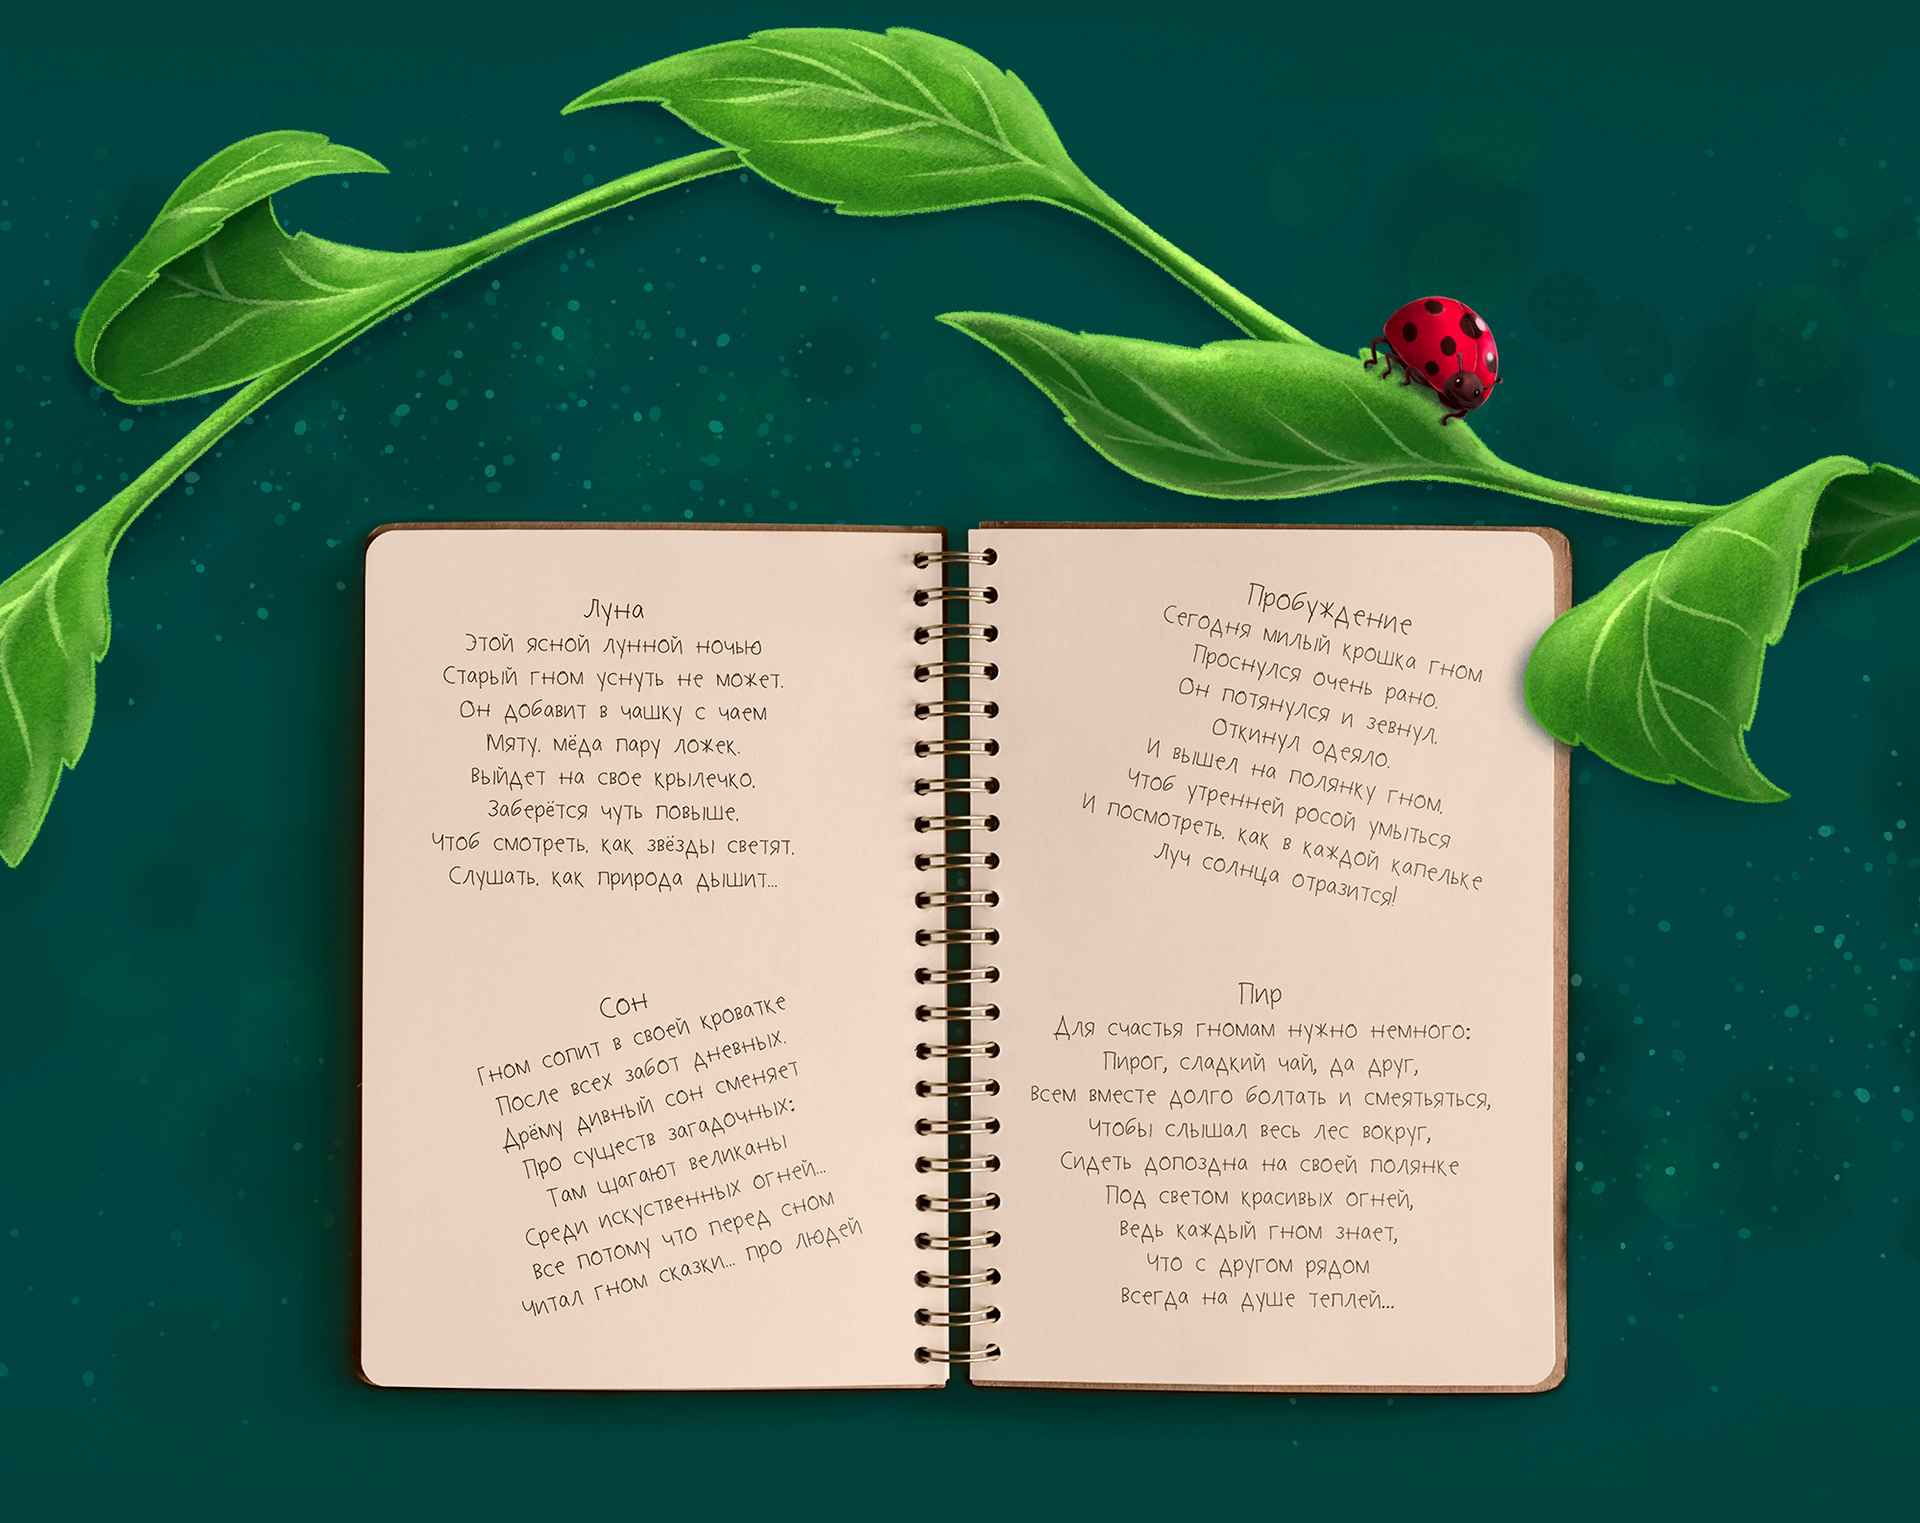 Луна
Этой ясной лунной ночью
Старый гном уснуть не может.
Он добавит в чашку с чаем
Мяту, мёда пару ложек.
Выйдет на свое крылечко,
Заберётся чуть повыше,
Чтоб смотреть, как звёзды светят,
Слушать, как природа дышит...
Сон
Гном сопит в своей кроватке
После всех забот дневных.
Дрёму дивный сон сменяет
Про существ загадочных:
Там щагают великаны
Среди искуственных огней...
Все потому что перед сном
Читал гном сказки... про людей
Пробуждение
Сегодня милый крошка гном
Проснулся очень рано.
Он потянулся и зевнул.
Откинул одеяло.
И вышел на полянку гном,
Чтоб утренней росой умыться
И посмотреть, как в каждой капельке
Луч солнца отразится!
Пир
Для счастья гномам нужно немного:
Пирог, сладкий чай, да друг,
Всем вместе долго болтать и смеятьяться,
Чтобы слышал весь лес вокруг,
Сидеть допоздна на своей полянке
Под светом красивых огней,
Ведь каждый гном знает,
Что с другом рядом
Всегда на душе теплей...